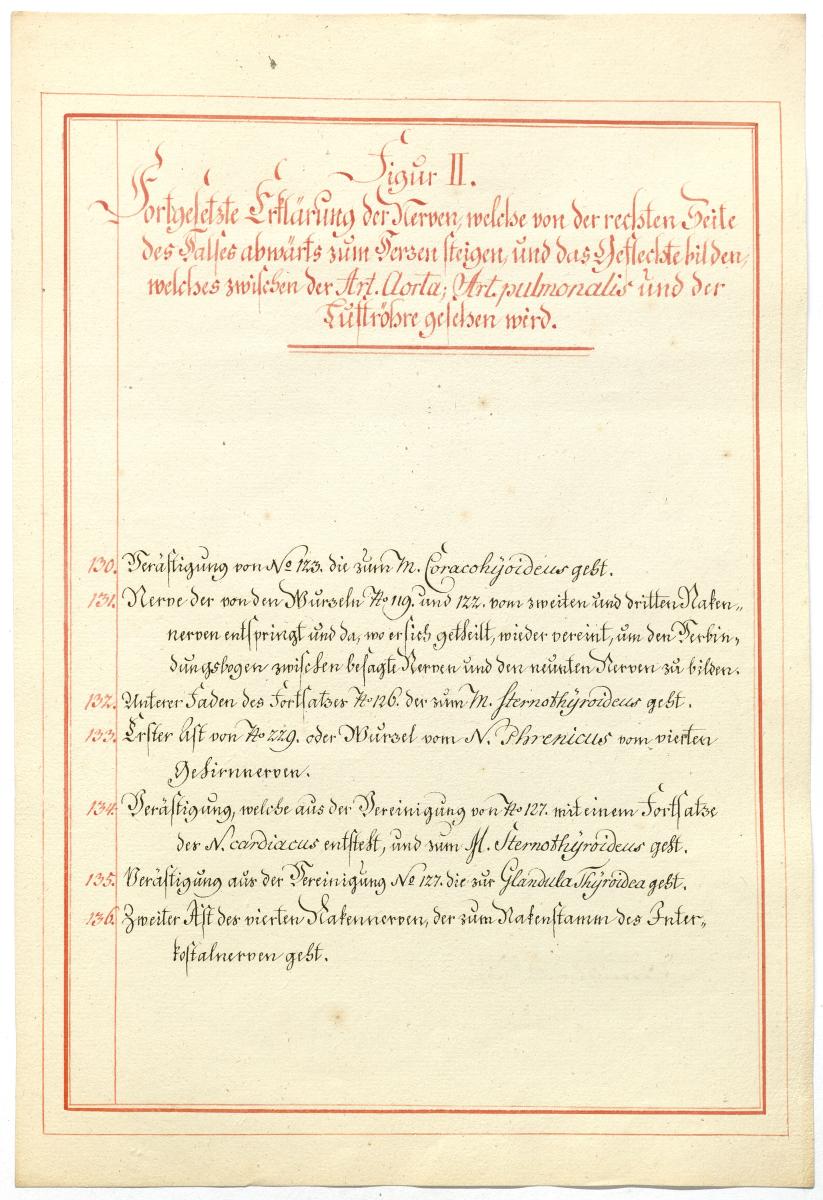 Figur II.
Fortgesetzte Erklärung der Nerven, welche von der rechten Seite
des Halses abwärts zum Herzen steigen, und das Geflechte bilden,
welches zwischen der Art. Aorta; Art. pulmonalis und der
Luftröhre gesehen wird.
130. Verästigung von No 123. die zum M. Coracohÿoideus geht.
131. Nerve der von den Wurzeln No 119. und 122. vom zweiten und dritten Naken„
nerven entspringt und da, wo er sich getheilt, wieder vereint, um den Verbin„
dungsbogen zwischen besagte Nerven und den neunten Nerven zu bilden.
132. Unterer Faden des Fortsatzes No 126. der zum M. Sternothÿroideus geht.
133. Erster Ast von No 229. oder Wurzel vom N. Phrenicus vom vierten
Gehirnnerven.
134. Verästigung, welche aus der Vereinigung von No 127. mit einem Fortsatze
des N. cardiacus entsteht, und zum M. Sternothÿroideus geht.
135. Verästigung aus der Vereinigung No 127. die zur Glandula Thÿroidea geht.
136. Zweiter Ast des vierten Nakennerven, der zum Nakenstamm des Inter„
kostalnerven geht.